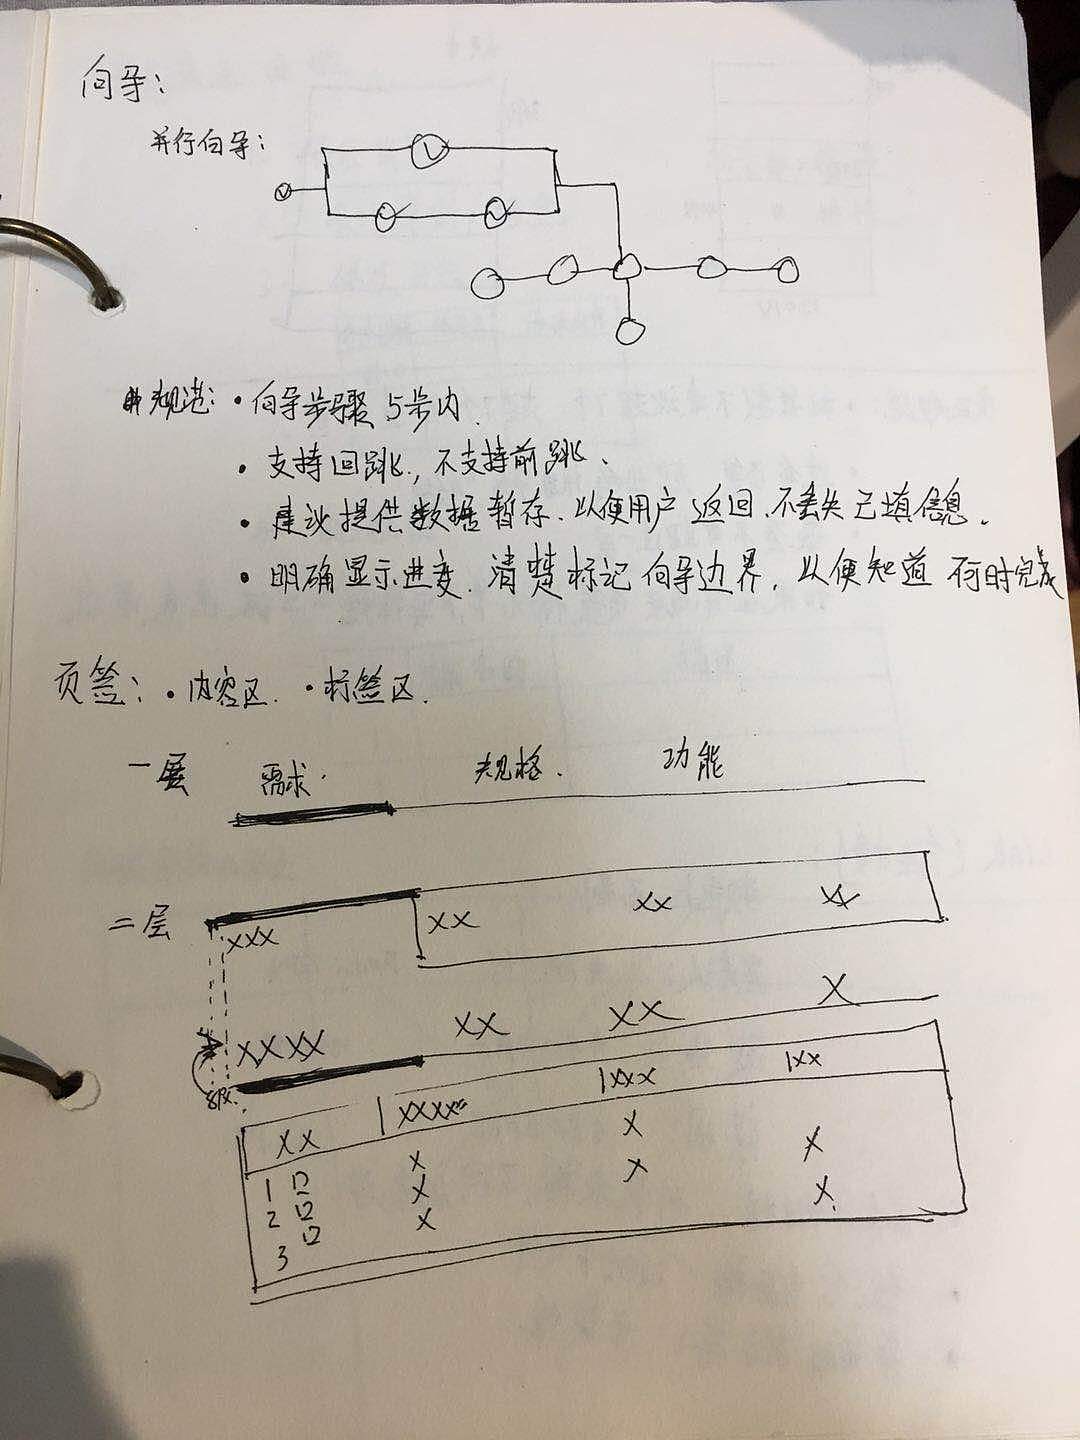 向导：
并行向导：
规范：·向导步骤 5步内
·支持回跳，不支持前跳、
·建议提供数据暂存、以便用户返回、不丢失已填信息。
·明确显示进度、清楚标记向导边界，以便知道何时完成
页签：·内容区、·标签区、
一层 需求、 规格、 功能
二层 XXX XX XX XX
XXXX XX XX X
8px
XX XXXX XXX XX
1 X X
2 X X X
3 X X